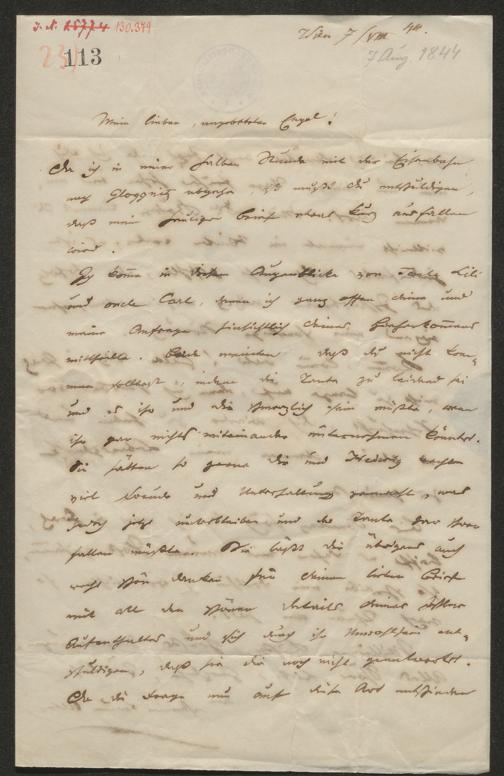 J. N. 130.379
113
Wien 7/VIII 44.
7 Aug. 1844
Mein lieber, angebeteter Engel!
Da ich in einer halben Stunde mit der Eisenbahn
nach Gloggnitz abgehe so mußt du entschuldigen,
daß mein heutiger Brief etwas kurz ausfallen
wird.
Ich komme in diesem Augenblicke von Tante Lili
und Onkel Carl, denen ich ganz offen deine und
meine Anfrage hinsichtlich deines Hieherkommens
mittheilte. Beide meinten, daß du nicht kom-
men solltest, indem die Tante zu leidend sei
und es ihr und dir schmerzlich sein müßte, wenn
ihr gar nichts miteinander unternehmen könntet.
Sie hätten so gerne dir und Hedwig rechten
viel Freude und Unterhaltung gemacht, was
jedoch jetzt unterbleiben und der Tante schwer
fallen müßte. Sie läßt dir übrigens auch
recht schön danken für deinen lieben Brief
mit all den schönen Details deines
Aufenthaltes und sich durch ihr Unwohlsein ent-
schuldigen, daß sie dir noch nicht geantwortet.
Da die Frage nun auf diese Art entschieden